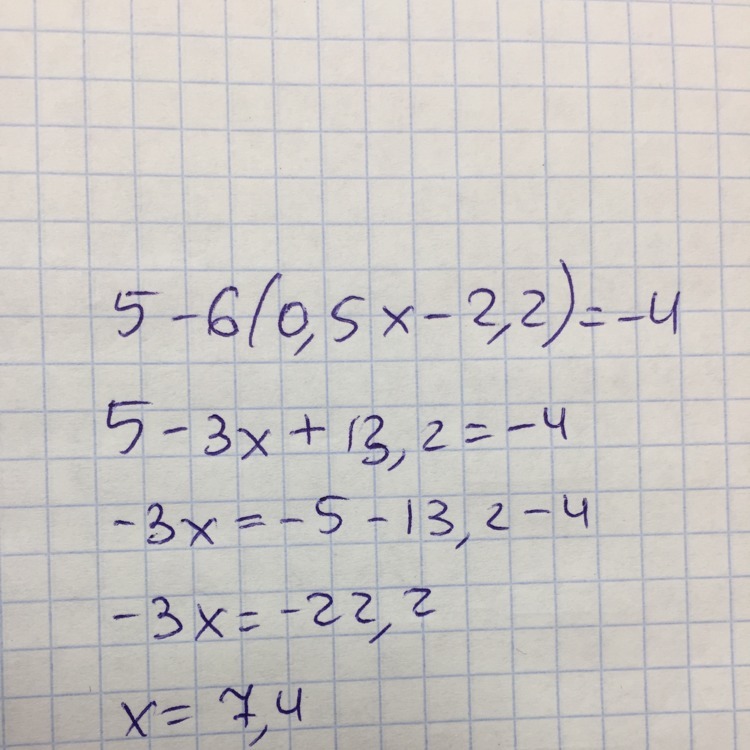 5 - 6(0,5x - 2,2) = -4
5 - 3x + 13,2 = -4
-3x = -5 - 13,2 - 4
-3x = -22,2
x = 7,4